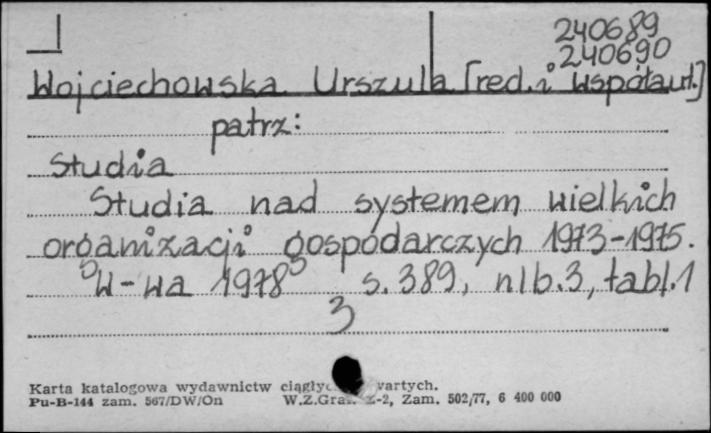 240689
240690
Wojciechowska Urszula [red. i współaut.]
patrz:
Studia
Studia nad systemem wielkich
organizacji gospodarczych 1973-1975.
W-wa 1978 s. 389, nlb. 3, tabl. 1
3
Karta katalogowa wydawnictw
Pu-B-144 zam. 567/DW/On W.Z.Graf. Z-2, Zam. 502/77, 6 400 000